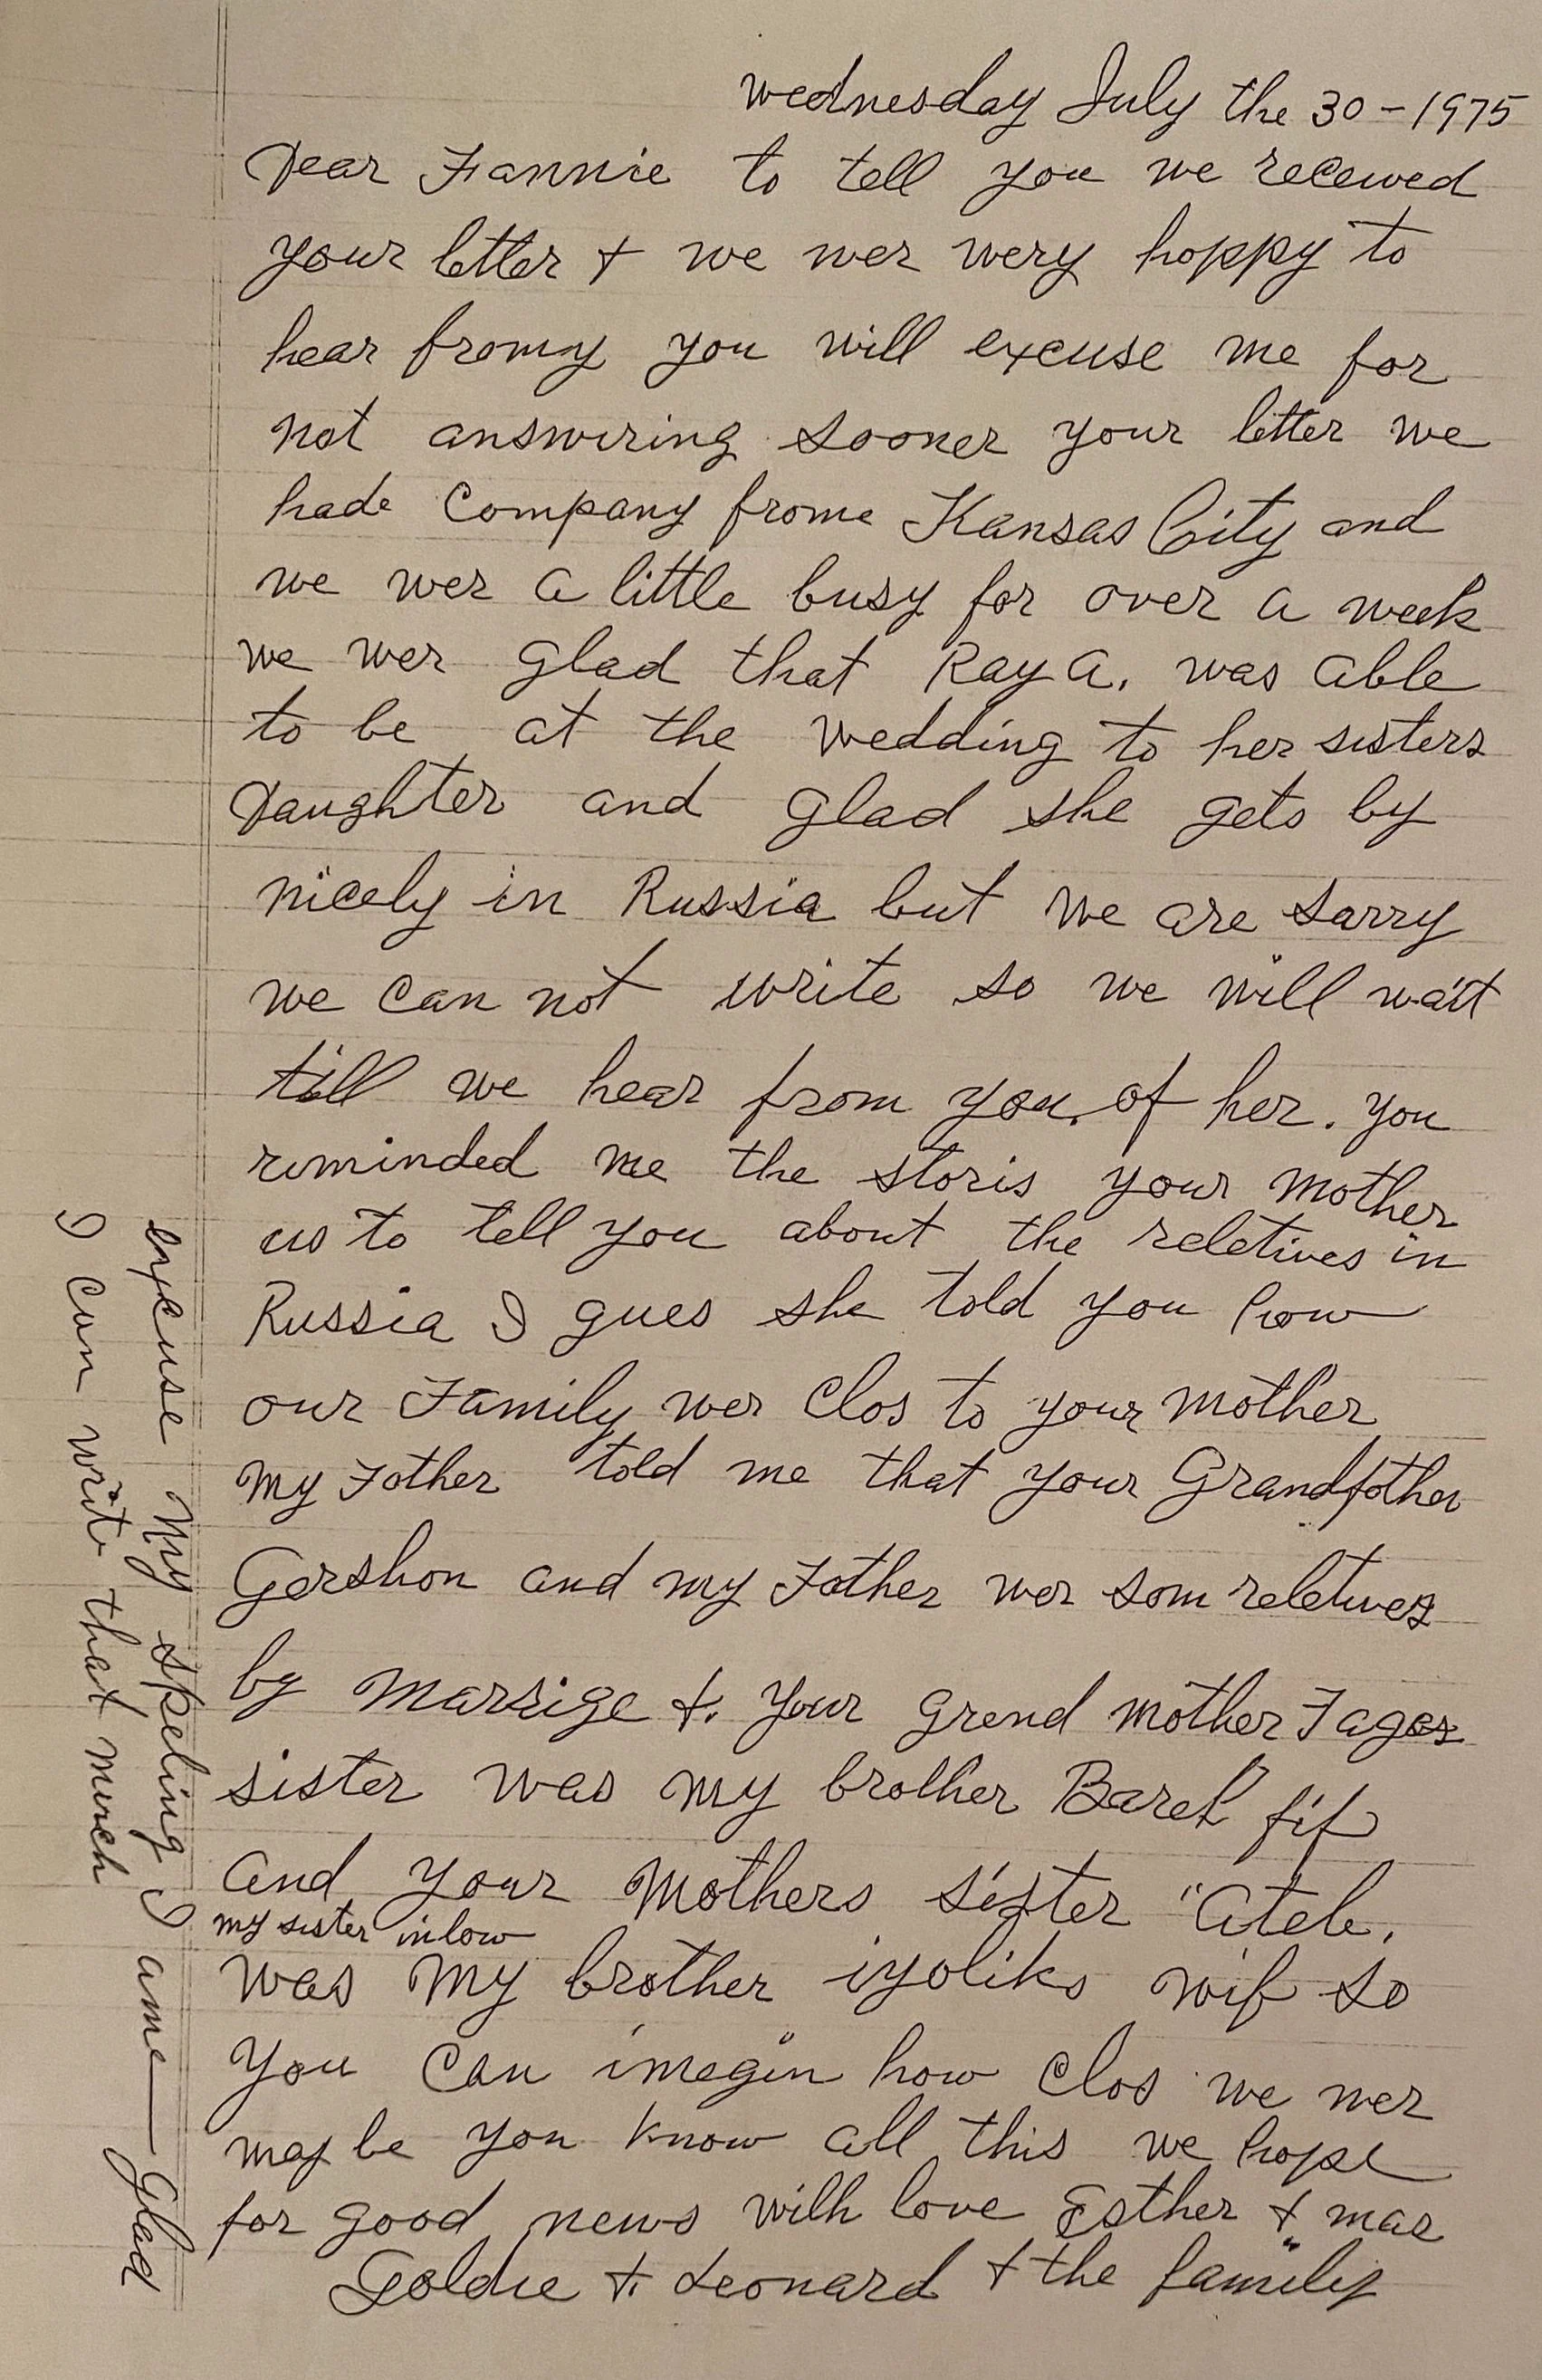 wednesday July the 30-1975
Dear Fannie to tell you we recewed
your letter + we wer wery hoppy to
hear fromy you will excuse me for
not answiring sooner your letter we
hade Company frome Kansas City and
we wer a little busy for over a week
we wer glad that Ray a. was able
to be at the wedding to her sisters
Daughter and glad she gets by
nicely in Russia but we are sarry
we can not write so we will wait
till we hear from you of her. you
reminded me the storis your mother
us to tell you about the reletives in
Russia I gues she told you how
our Family wer Clos to your mother
my Father told me that your Grandfother
Gershon and my Father wer som reletives
by marrige +. your grend mother Fages
sister was my brother Barek
and your mothers sister "atele.
my sister inlow
was my brother iyoliks wif so
you can imegin how Clos we wer
may be you know all this we hope
for good news with love Esther + mae
Goldie + Leonard + the family
excuse my speling I ame—glad
I can write that much